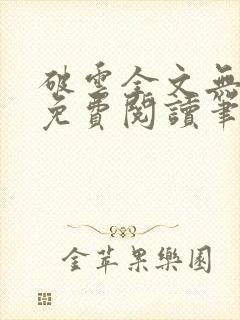 破雲全文無
免費閱讀筆
金苹果樂園